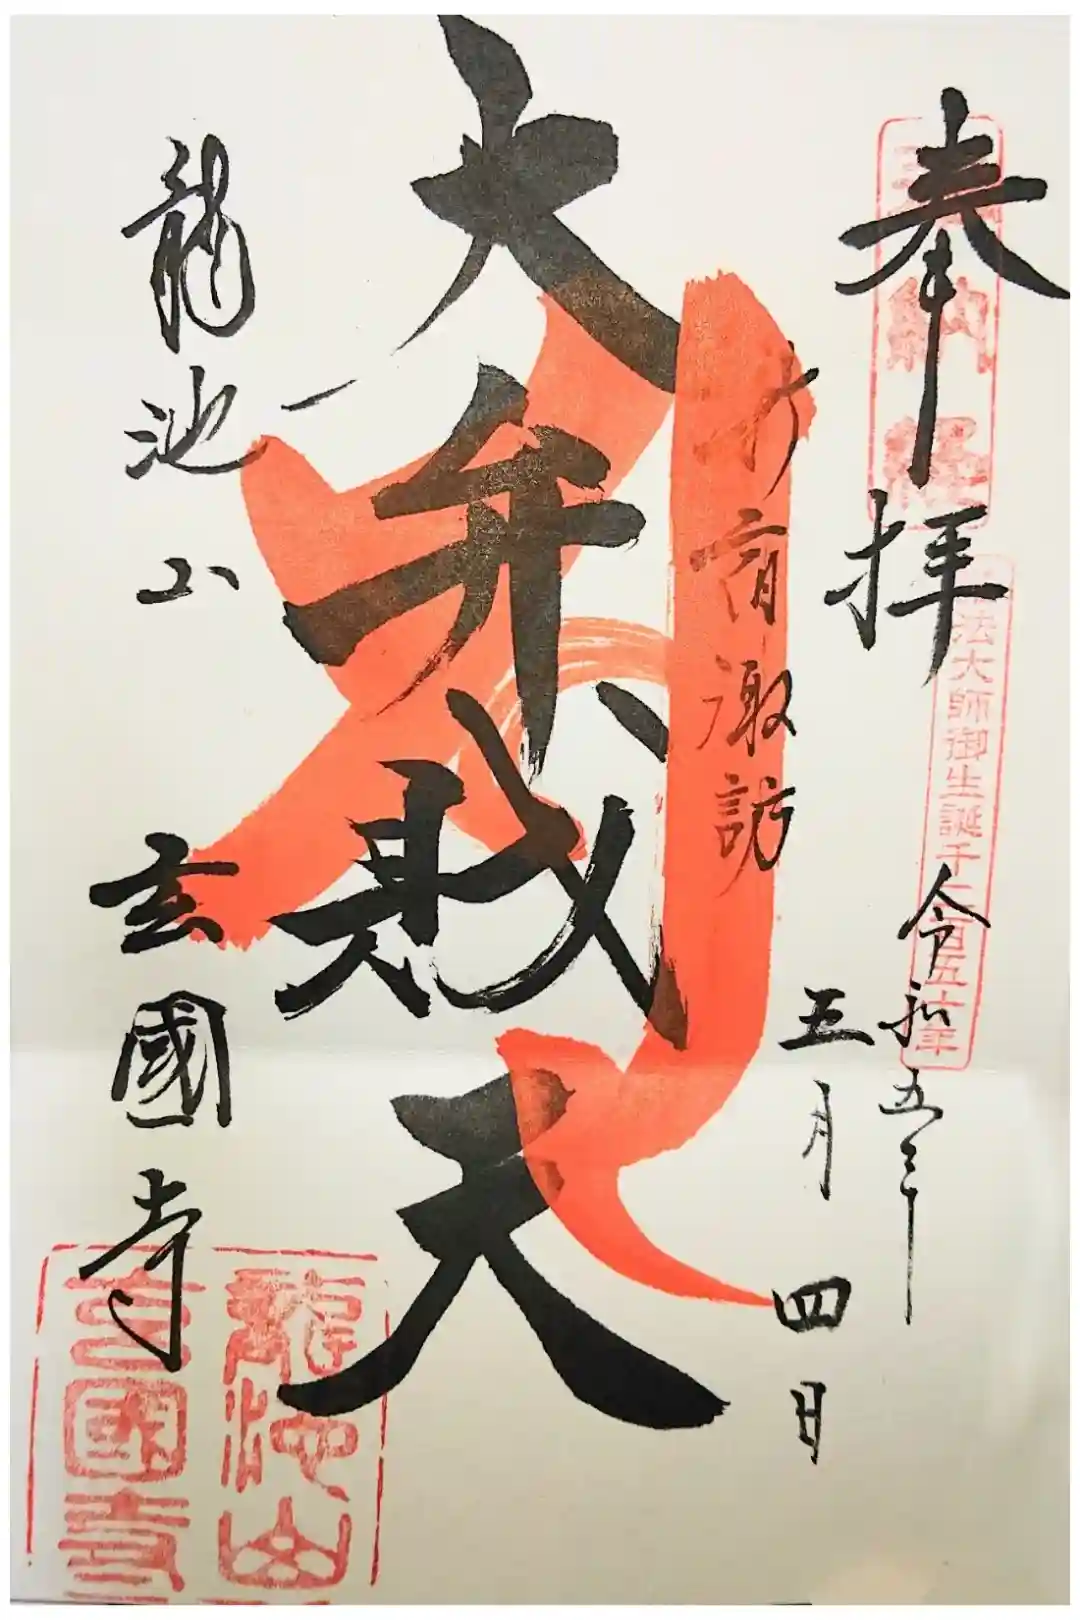 奉拝
法大師御生誕千二百五十年
令和五年
五月四日
新宿諏訪
大弁財天
龍池山
玄國寺
龍池山
玄國寺